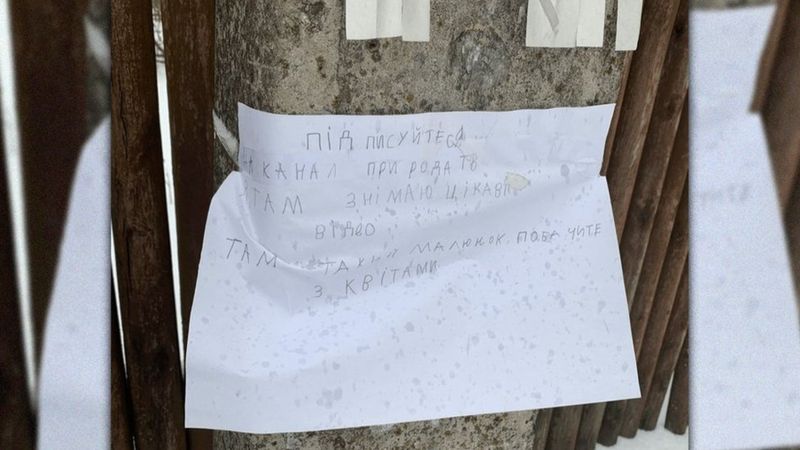 ПІДПИСУЙТЕСЯ
НА КАНАЛ ПРИРОДА ТВ
ТАМ ЗНІМАЮ ЦІКАВІ
ВІДЕО
ТАМ ТАКИЙ МАЛЮНОК ПОБАЧИТЕ
З КВІТАМИ